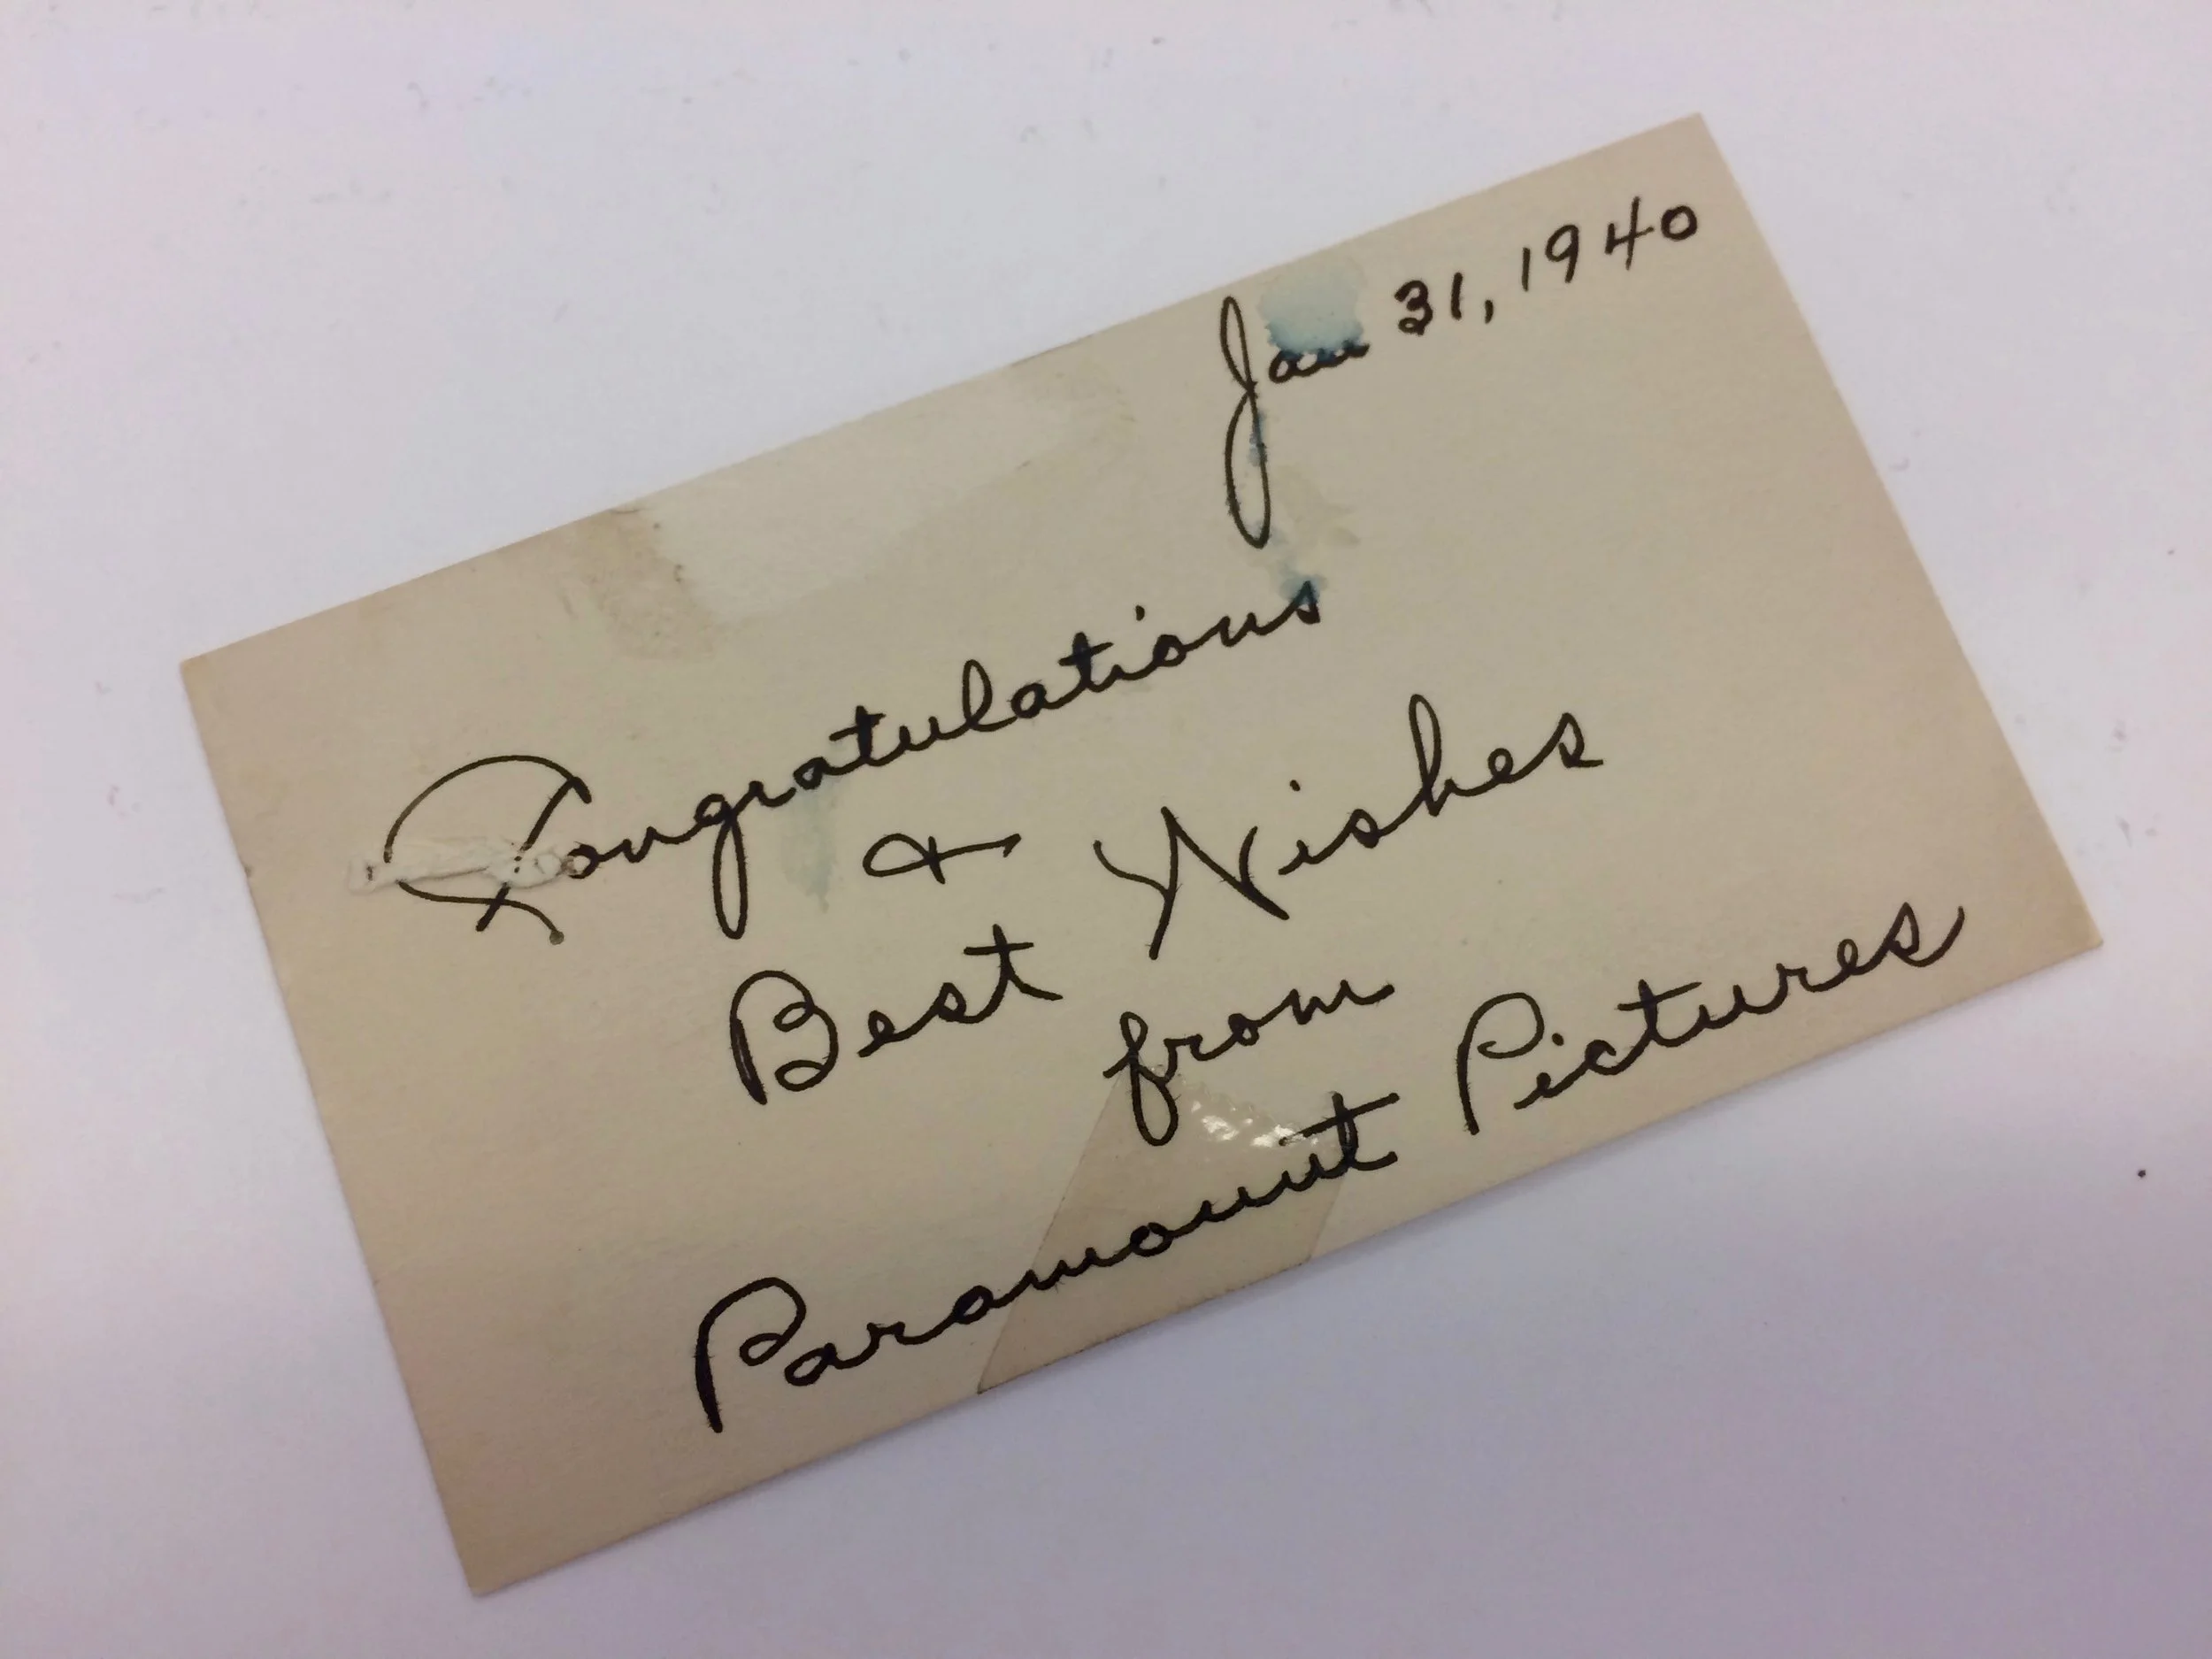 Jan 31, 1940
Congratulations
&
Best Wishes
from
Paramount Pictures